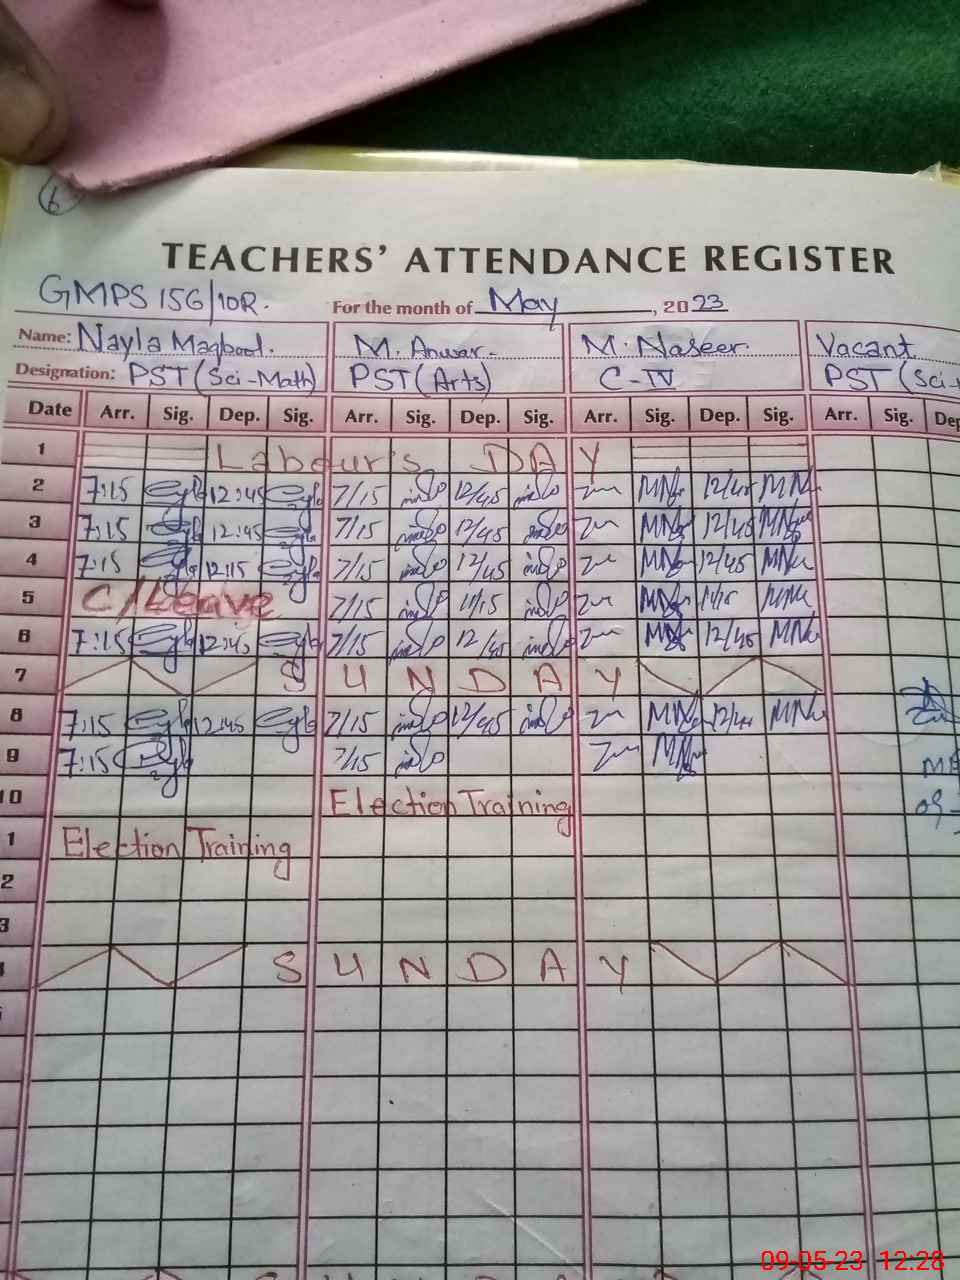 6
TEACHERS' ATTENDANCE REGISTER
GMPS 156/10R. For the month of May, 2023
Name: Nayla Maqbool. M. Anwar. M. Naseer. Vacant
Designation: PST (Sci-Math) PST (Arts) C-IV PST (Sci-
Date Arr. Sig. Dep. Sig. Arr. Sig. Dep. Sig. Arr. Sig. Dep. Sig. Arr. Sig. Dep
1 Labour's DAY
2 7:15 12:45 7/15 12/45 12/45
3 7:15 12:45 7/15 12/45 12/45
4 7:15 12:15 7/15 12/45 12/45
5 C/Leave 7/15 11/15
6 7:15 12:45 7/15 12/45 12/45
7 SUNDAY
8 7:15 12:45 7/15 12/45
9 7:15 7/15
10 Election Training
1 Election Training
2
3
SUNDAY
09-05-23 12:28